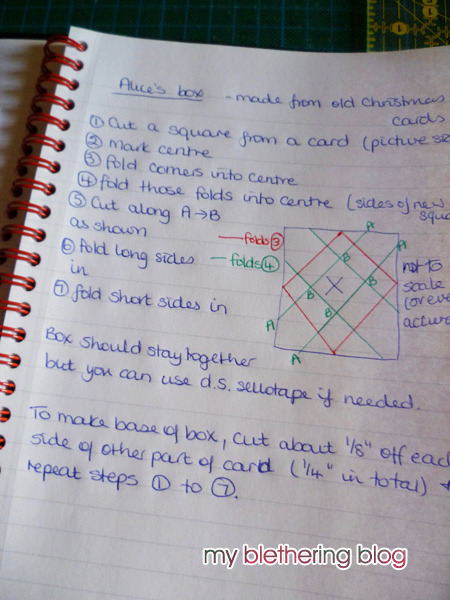 Alice's box - made from old Christmas
cards
① Cut a square from a card (picture
② Mark centre
③ fold corners into centre
④ fold those folds into centre (sides of new
⑤ Cut along A→B
as shown
— folds ③
⑥ fold long sides
in
— folds ④
⑦ fold short sides in
A
A
B
B
B
B
A
A
not to
scale
Box should stay together
but you can use d.s. sellotape if needed.
To make base of box, cut about 1/8" off each
side of other part of card (1/4" in total)
repeat steps ① to ⑦.
my blethering blog